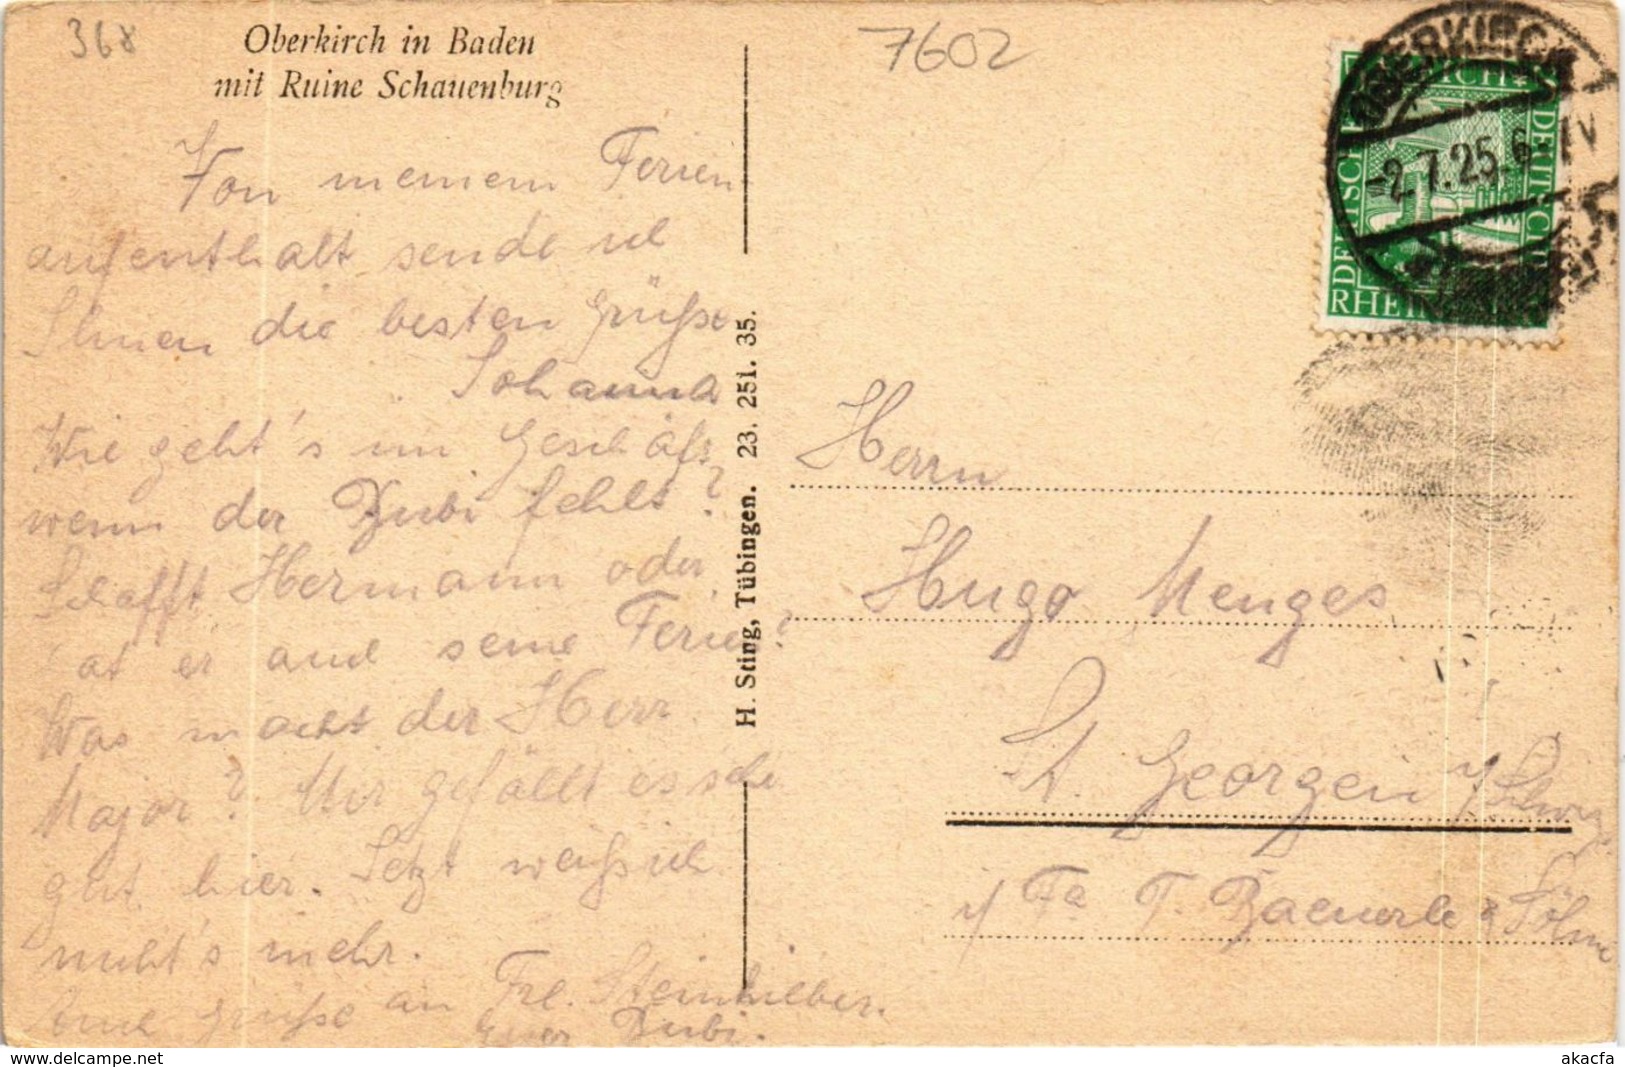 368
Oberkirch in Baden
mit Ruine Schauenburg
Von meinem Ferien
aufenthalt sende ich
Ihnen die besten Grüsse
Johanna
Wie geht's im Geschäft
wenn der Bubi fehlt?
Schafft Hermann oder
hat er auch seine Ferien?
Was macht der Herr
Major? Mir gefällt es sehr
gut hier. Jetzt weiß ich
nicht's mehr.
Auch Grüße an Frl. Steinhilber.
Euer Bubi.
H. Sting, Tübingen. 23. 251. 35.
7602
OBERKIRCH
-2.7.25. 6-
DEUTSCHES REICH
RHEIN
Herrn
Hugo Menges
St. Georgen / Schwarz
/ Fa T. Baeuerle & Söhne
www.delcampe.net
akacfa